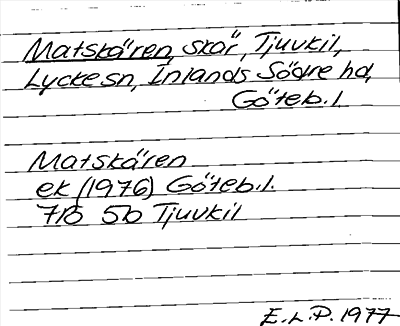 Matskären, skär, Tjuvkil,
Lycke sn, Inlands Södre hd,
Göteb. l.
Matskären
ek (1976) Göteb. l.
7B 5b Tjuvkil
E.L.P. 1977